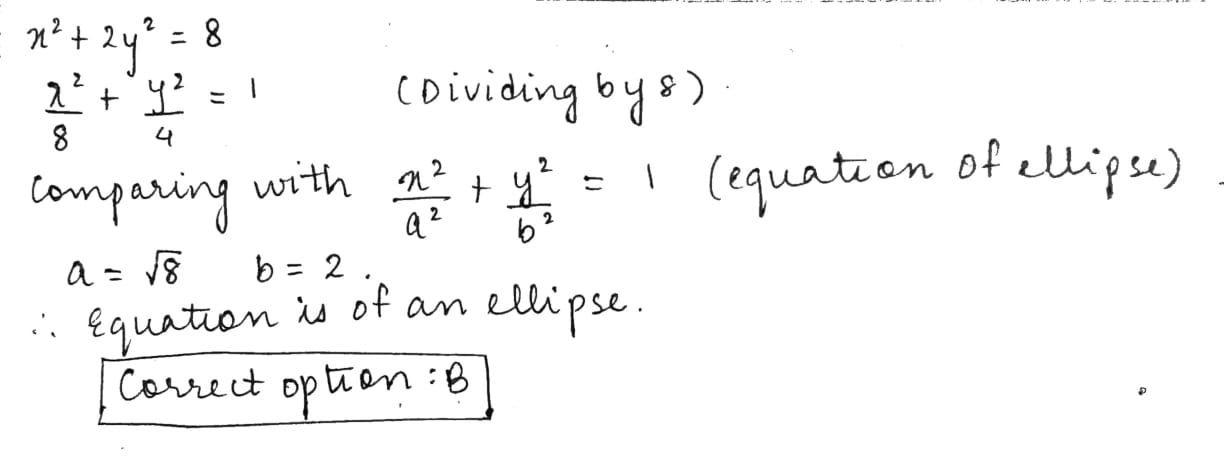 x² + 2y² = 8
x²/8 + y²/4 = 1 (Dividing by 8).
Comparing with x²/a² + y²/b² = 1 (equation of ellipse).
a = √8 b = 2.
∴ Equation is of an ellipse.
Correct option : B